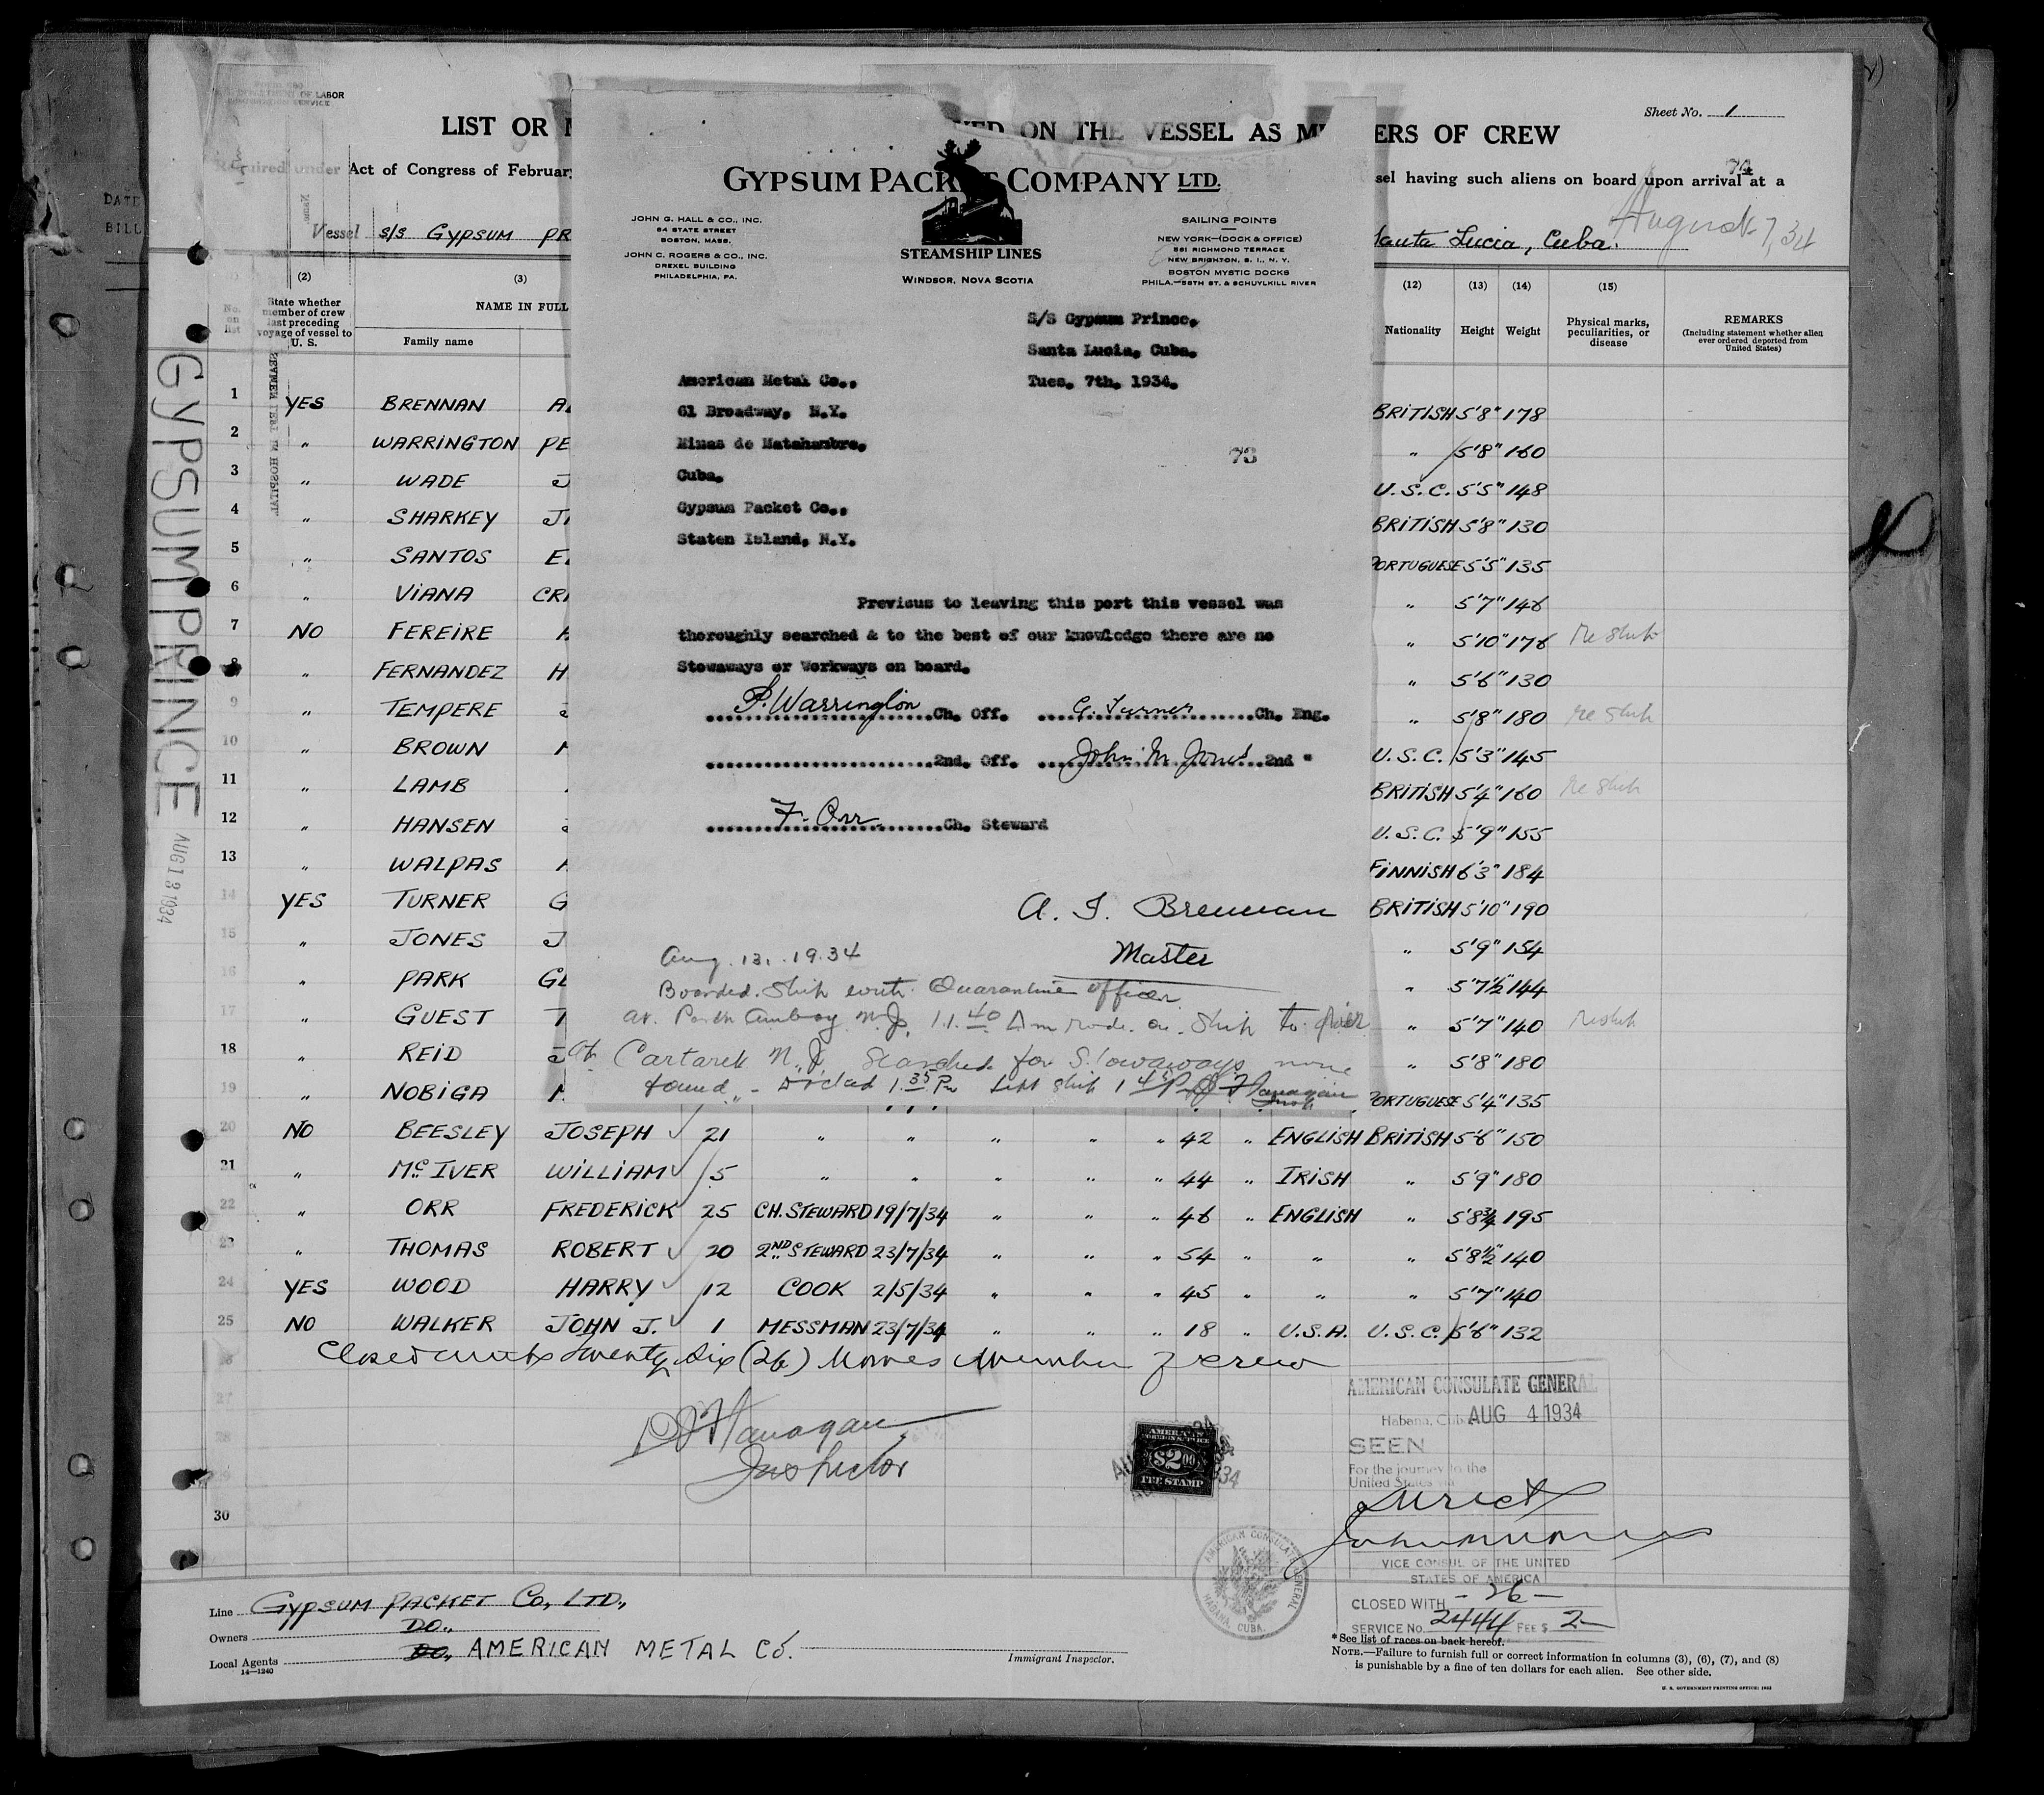 Sheet No. 1
LIST OR ON THE VESSEL AS MEMBERS OF CREW
Required under Act of Congress of February
sel having such aliens on board upon arrival at a
74
Vessel S/S GYPSUM PR
Santa Lucia, Cuba.
August 7, 34
GYPSUM PACKET COMPANY LTD.
STEAMSHIP LINES
WINDSOR, NOVA SCOTIA
JOHN G. HALL & CO., INC.
84 STATE STREET
BOSTON, MASS.
JOHN C. ROGERS & CO., INC.
DREXEL BUILDING
PHILADELPHIA, PA.
SAILING POINTS
NEW YORK—(DOCK & OFFICE)
561 RICHMOND TERRACE
NEW BRIGHTON, S. I., N. Y.
BOSTON MYSTIC DOCKS
PHILA.—58TH ST. & SCHUYLKILL RIVER
S/S Gypsum Prince,
Santa Lucia, Cuba.
Tues. 7th. 1934.
American Metal Co.,
61 Broadway, N.Y.
Minas de Matahambre,
Cuba.
Gypsum Packet Co.,
Staten Island, N.Y.
73
Previous to leaving this port this vessel was
thoroughly searched & to the best of our knowledge there are no
Stowaways or Workways on board.
P. Warrington Ch. Off. G. Turner Ch. Eng.
2nd. Off. John M Jones 2nd "
F. Orr Ch. Steward
A. I. Brennan
Master
Aug. 13, 1934
Boarded Ship with Quarantine officer
at Perth Amboy N.J. 11.40 Am rode on ship to pier
at Cartaret N.J. Searched for Stowaways none
found – Docked 1.35 Pm Left ship 1 45 P
(2) (3) (12) (13) (14) (15)
No. on list
State whether member of crew last preceding voyage of vessel to U. S.
NAME IN FULL
Family name
Nationality Height Weight
Physical marks, peculiarities, or disease
REMARKS
(Including statement whether alien ever ordered deported from United States)
GYPSUM PRINCE
AUG 13 1934
SEAMEN LEFT IN HOSPITAL
1 YES BRENNAN BRITISH 5'8" 178
2 " WARRINGTON PE " 5'8" 160
3 " WADE J U.S.C. 5'5" 148
4 " SHARKEY BRITISH 5'8" 130
5 " SANTOS E PORTUGUESE 5'5" 135
6 " VIANA CRI " 5'7" 146
7 NO FEREIRE " 5'10" 176 Reship
8 " FERNANDEZ H " 5'6" 130
9 " TEMPERE " 5'8" 180 Reship
10 " BROWN U.S.C. 5'3" 145
11 " LAMB BRITISH 5'4" 160 Reship
12 " HANSEN U.S.C. 5'9" 155
13 " WALPAS FINNISH 6'3" 184
14 YES TURNER G BRITISH 5'10" 190
15 " JONES J " 5'9" 154
16 " PARK GL " 5'7½" 144
17 " GUEST " 5'7" 140 Reship
18 " REID " 5'8" 180
19 " NOBIGA PORTUGUESE 5'4" 135
20 NO BEESLEY JOSEPH 21 " " " " " 42 " ENGLISH BRITISH 5'6" 150
21 " McIVER WILLIAM 5 " " " " " 44 " IRISH " 5'9" 180
22 " ORR FREDERICK 25 CH. STEWARD 19/7/34 " " " 46 " ENGLISH " 5'8¾ 195
23 " THOMAS ROBERT 20 2ND STEWARD 23/7/34 " " " 54 " " " 5'8½" 140
24 YES WOOD HARRY 12 COOK 2/5/34 " " " 45 " " " 5'7" 140
25 NO WALKER JOHN J. 1 MESSMAN 23/7/34 " " " 18 " U.S.A. U.S.C. 5'6" 132
Closed with Twenty Six (26) Names Member of crew
27
28
29
30
Flanagan
Inspector
AMERICAN
FOREIGN SERVICE
$2.00
FEE STAMP
AMERICAN CONSULATE GENERAL
Habana, Cuba AUG 4 1934
SEEN
For the journey to the
United States
Direct
VICE CONSUL OF THE UNITED
STATES OF AMERICA
CLOSED WITH – 26 –
SERVICE No. 2444 FEE $ 2–
AMERICAN CONSULATE GENERAL
HABANA, CUBA.
Line GYPSUM PACKET CO., LTD.,
Owners DO.,
Local Agents DO., AMERICAN METAL CO.
14—1240
Immigrant Inspector.
*See list of races on back hereof.
NOTE.—Failure to furnish full or correct information in columns (3), (6), (7), and (8)
is punishable by a fine of ten dollars for each alien. See other side.
U. S. GOVERNMENT PRINTING OFFICE: